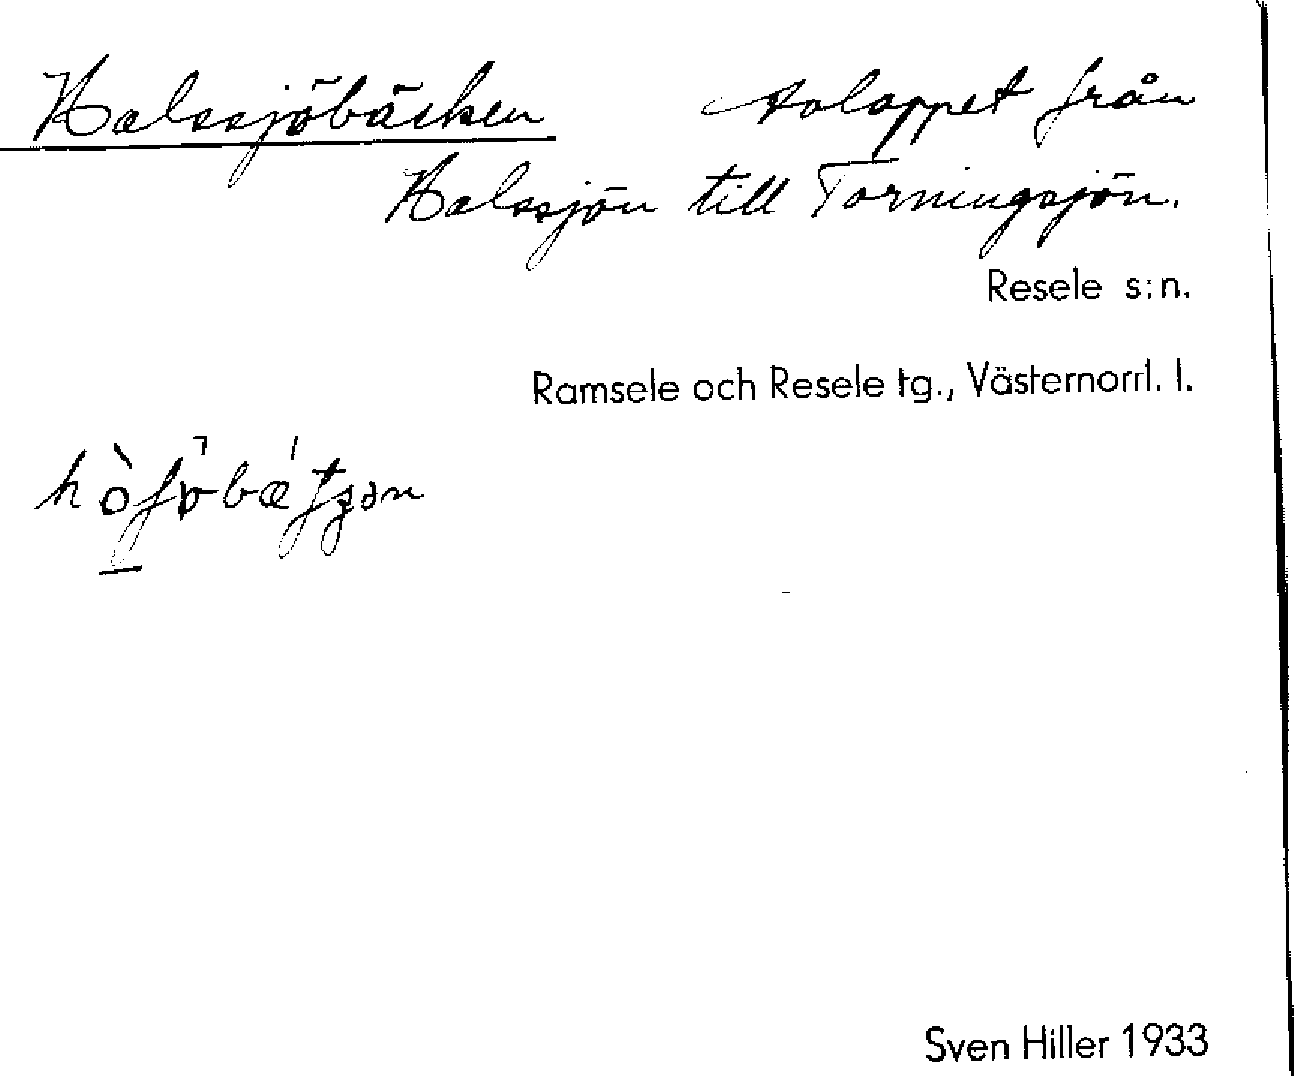 Halssjöbäcken Avloppet från
Halssjön till Torningsjön.
Resele s:n.
Ramsele och Resele tg., Västernorrl. l.
Sven Hiller 1933